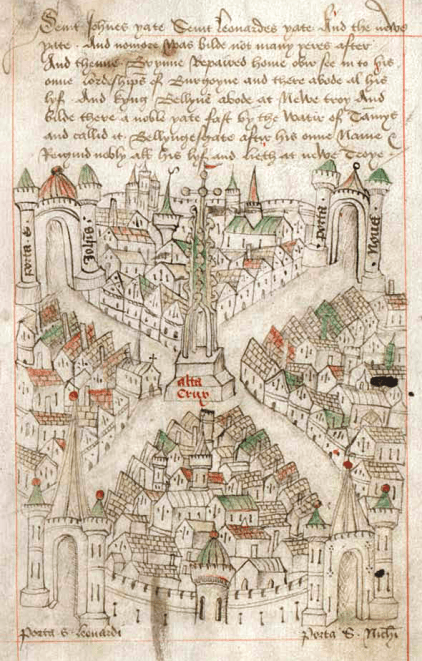 Seint Johnes yate Seint Leonardes yate And the newe
yate · And nomore was bilde not many yeres after
And thenne Brynne repaired home ovir see in to his
onne lordeships of Burgoyne and there abode al his
lyf · And kyng Bellyne abode at Newe troy And
bilde there a noble yate fast by the watir of Tamys
and callid it Bellyngesyate aftir his onne Name &
Reigned nobly all his lyf and lieth at newe Troye
porta S.
Johis.
porta
Noua
alta
Crux
Porta s. leonardi
porta S. Nichi